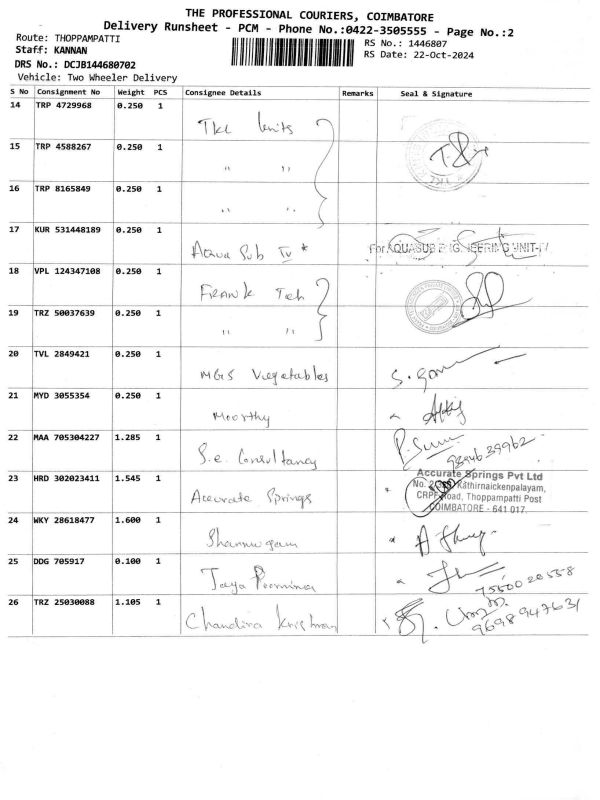 THE PROFESSIONAL COURIERS, COIMBATORE
Delivery Runsheet - PCM - Phone No.:0422-3505555 - Page No.:2
Route: THOPPAMPATTI
Staff: KANNAN
RS No.: 1446807
RS Date: 22-Oct-2024
DRS No.: DCJB144680702
Vehicle: Two Wheeler Delivery
S No Consignment No Weight PCS Consignee Details Remarks Seal & Signature
14 TRP 4729968 0.250 1
TKL Units
15 TRP 4588267 0.250 1
" "
16 TRP 8165849 0.250 1
" "
17 KUR 531448189 0.250 1
Aqua Sub IV *
For AQUASUB ENGINEERING UNIT-IV
18 VPL 124347108 0.250 1
Frank Teh
19 TRZ 50037639 0.250 1
" "
20 TVL 2849421 0.250 1
MGS Vegetables
21 MYD 3055354 0.250 1
Moorthy
22 MAA 705304227 1.285 1
S.e. Consultancy
9894639962
23 HRD 302023411 1.545 1
Accurate Springs
Accurate Springs Pvt Ltd
Kathirnaickenpalayam,
CRPF Road, Thoppampatti Post
COIMBATORE - 641 017.
24 WKY 28618477 1.600 1
Shanmugam
25 DDG 705917 0.100 1
Jaya Poornima
7550020558
26 TRZ 25030088 1.105 1
Chandira Krishnan
9698947631